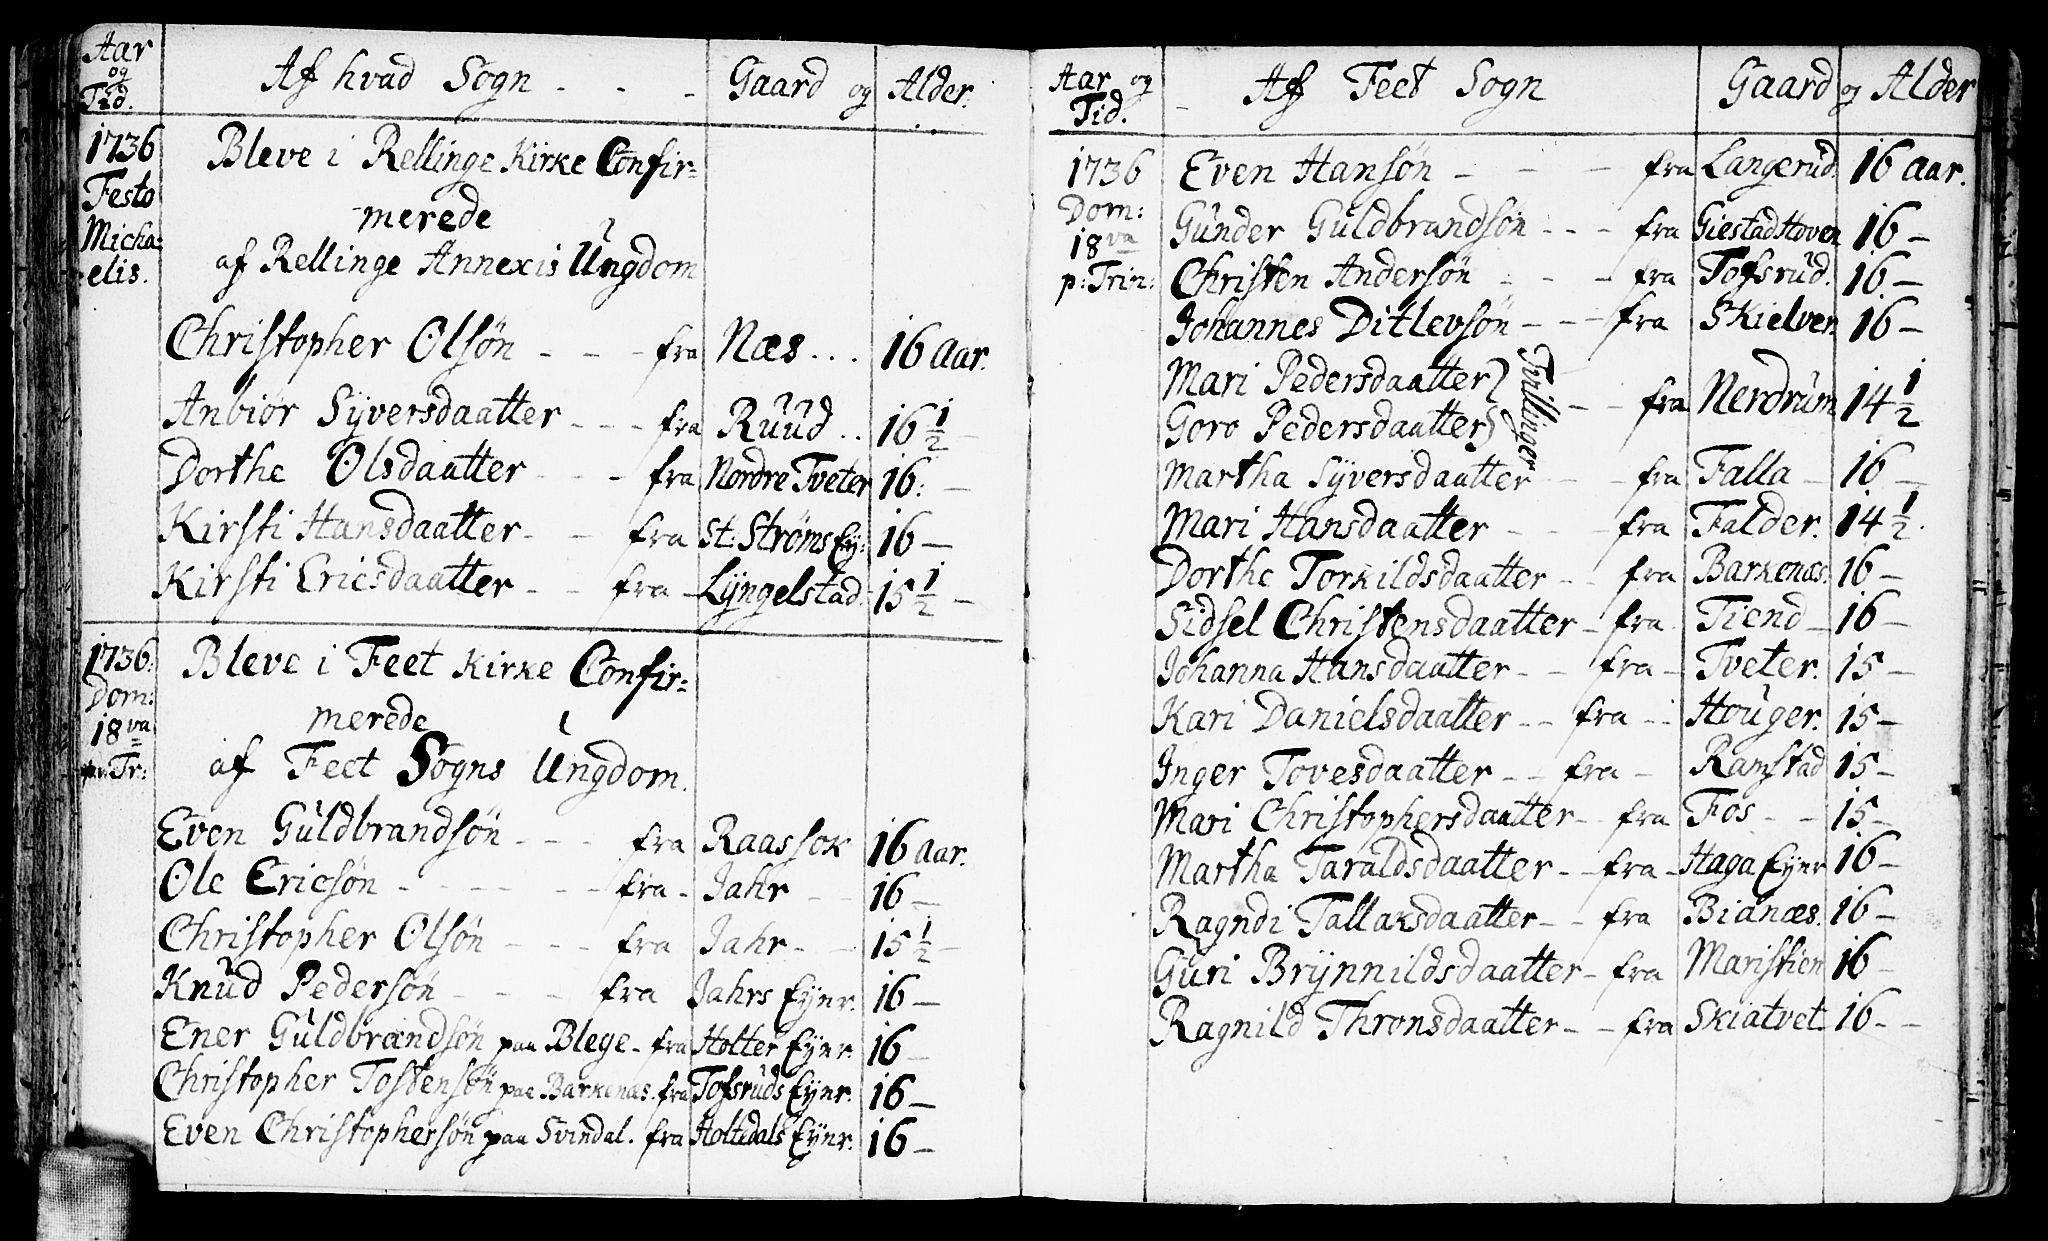 Aar og Tid. Af hvad Sogn - - - Gaard og Alder.
1736 Festo Micha= elis.
Bleve i Rellinge Kirke Confir=
merede
af Rellinge Annexis Ungdom
Christopher Olsøn - - - fra Næs... 16 Aar.
Anbiør Syversdaatter - - - fra Ruud.. 16 1/2 -
Dorthe Olsdaatter - - - fra Nordre Tveter 16: -
Kirsti Hansdaatter - - fra St: Strøms Ey: 16 -
Kirsti Ericsdaatter - - fra - Lyngelstad. 15 1/2 -
1736: Dom: 18va p: Tr:
Bleve i Feet Kirke Confir=
merede
af Feet Sogns Ungdom.
Even Guldbrandsøn - - - fra Raassok 16 Aar.
Ole Ericsøn - - - - - - fra - Jahr - - 16 -
Christopher Olsøn - - - fra Jahr - - 15 1/2 -
Knud Pedersøn - - - fra Jahrs Eyer. 16 -
Ener Guldbrandsøn paa Blege - fra Holter Eyer. 16 -
Christopher Tostensøn paa Barkenæs. fra Tofsruds Eyer. 16 -
Even Christophersøn paa Svindal. fra Holtedals Eyer. 16 -
Aar og Tid. - Af Feet Sogn Gaard og Alder
1736 Dom: 18va p: Trin:
Even Hansøn - - - fra Langerud. 16 Aar.
Gunder Guldbrandsøn - - - fra Giestad Hoven 16 -
Christen Andersøn - - - fra Tofsrud. 16 -
Johannes Ditlevsøn - - - fra Skielven 16 -
Mari Pedersdaatter
Goro Pedersdaatter Tvillinger - - fra Nerdrum 14 1/2
Martha Syversdaatter - - - fra Falla - 16 -
Mari Hansdaatter - - - fra Falder. 14 1/2.
Dorthe Torkildsdaatter - - fra Barkenæs. 16 -
Sidsel Christensdaatter - fra Tiend - 16 -
Johanna Hansdaatter - - fra - Tveter. 15 -
Kari Danielsdaatter - - fra - - Houger. 15 -
Inger Tovesdaatter - - fra - Ramstad 15 -
Mari Christophersdaatter - fra Fos - - 15 -
Martha Taraldsdaatter - - fra - Haga Eyer 16 -
Ragndi Tallaksdaatter - - fra Bianæs. 16 -
Guri Brynnildsdaatter - fra Maristien 16 -
Ragnild Thronsdaatter - - fra Skiatvet 16 - -